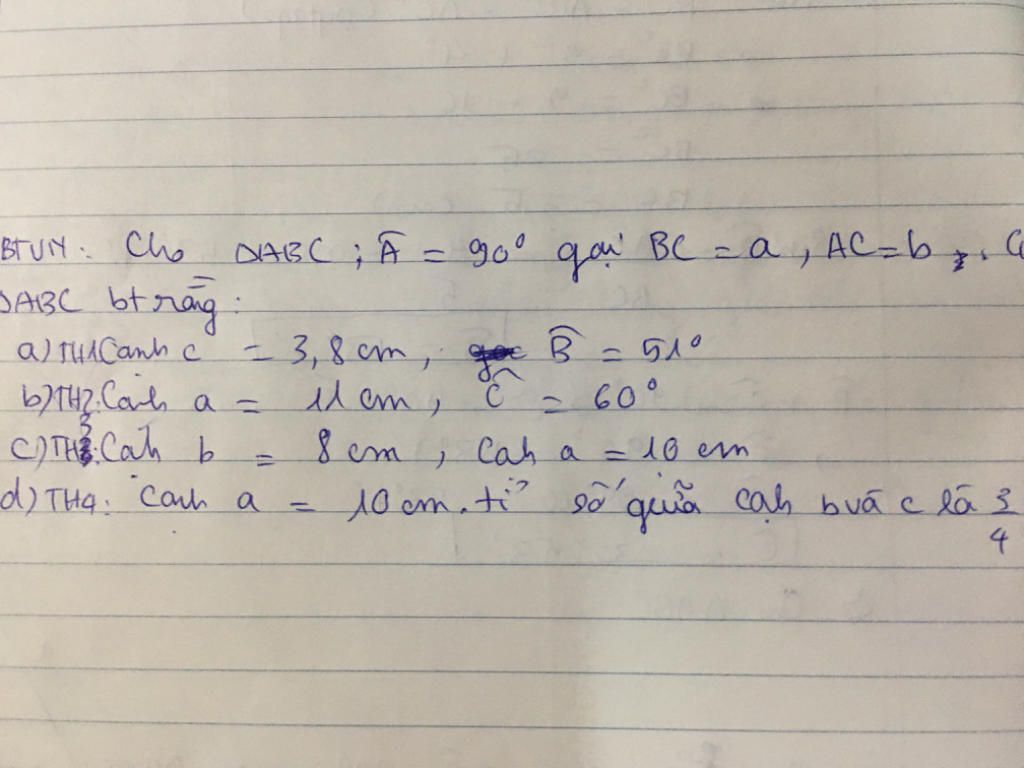 BTVN: Cho ΔABC ; Â = 90° gọi BC = a, AC = b
ΔABC bt rằng:
a) TH1 Canh c = 3,8 cm, B̂ = 51°
b) TH2: Cạh a = 11 cm, Ĉ = 60°
c) TH3: Cạh b = 8 cm, Cah a = 10 cm
d) TH4: Canh a = 10 cm. tỉ số giữa cạh b và c là 3/4